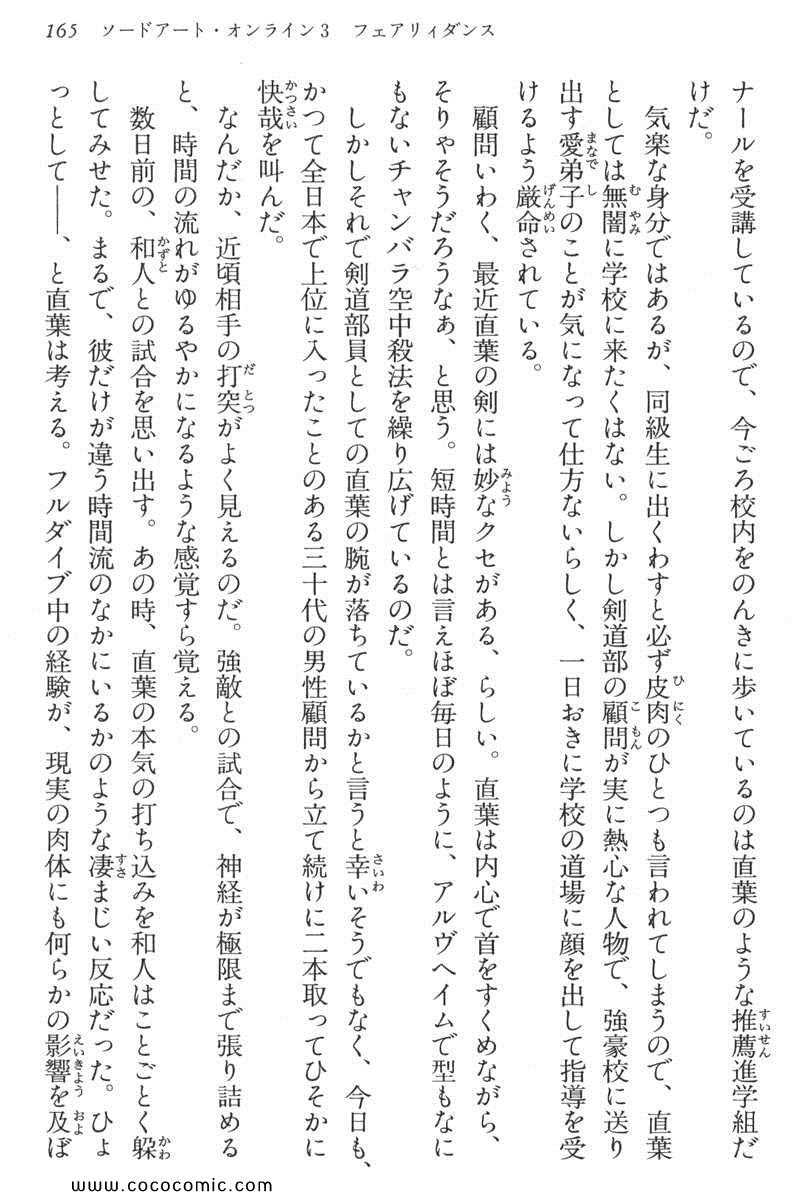 165　ソードアート・オンライン3　フェアリィダンス
ナールを受講しているので、今ごろ校内をのんきに歩いているのは直葉のような推薦進学組だ
けだ。
　気楽な身分ではあるが、同級生に出くわすと必ず皮肉のひとつも言われてしまうので、直葉
としては無闇に学校に来たくはない。しかし剣道部の顧問が実に熱心な人物で、強豪校に送り
出す愛弟子のことが気になって仕方ないらしく、一日おきに学校の道場に顔を出して指導を受
けるよう厳命されている。
　顧問いわく、最近直葉の剣には妙なクセがある、らしい。直葉は内心で首をすくめながら、
そりゃそうだろうなぁ、と思う。短時間とは言えほぼ毎日のように、アルヴヘイムで型もなに
もないチャンバラ空中殺法を繰り広げているのだ。
　しかしそれで剣道部員としての直葉の腕が落ちているかと言うと幸いそうでもなく、今日も、
かつて全日本で上位に入ったことのある三十代の男性顧問から立て続けに二本取ってひそかに
快哉を叫んだ。
　なんだか、近頃相手の打突がよく見えるのだ。強敵との試合で、神経が極限まで張り詰める
と、時間の流れがゆるやかになるような感覚すら覚える。
　数日前の、和人との試合を思い出す。あの時、直葉の本気の打ち込みを和人はことごとく躱
してみせた。まるで、彼だけが違う時間流のなかにいるかのような凄まじい反応だった。ひょ
っとして――、と直葉は考える。フルダイブ中の経験が、現実の肉体にも何らかの影響を及ぼ
www.cococomic.com